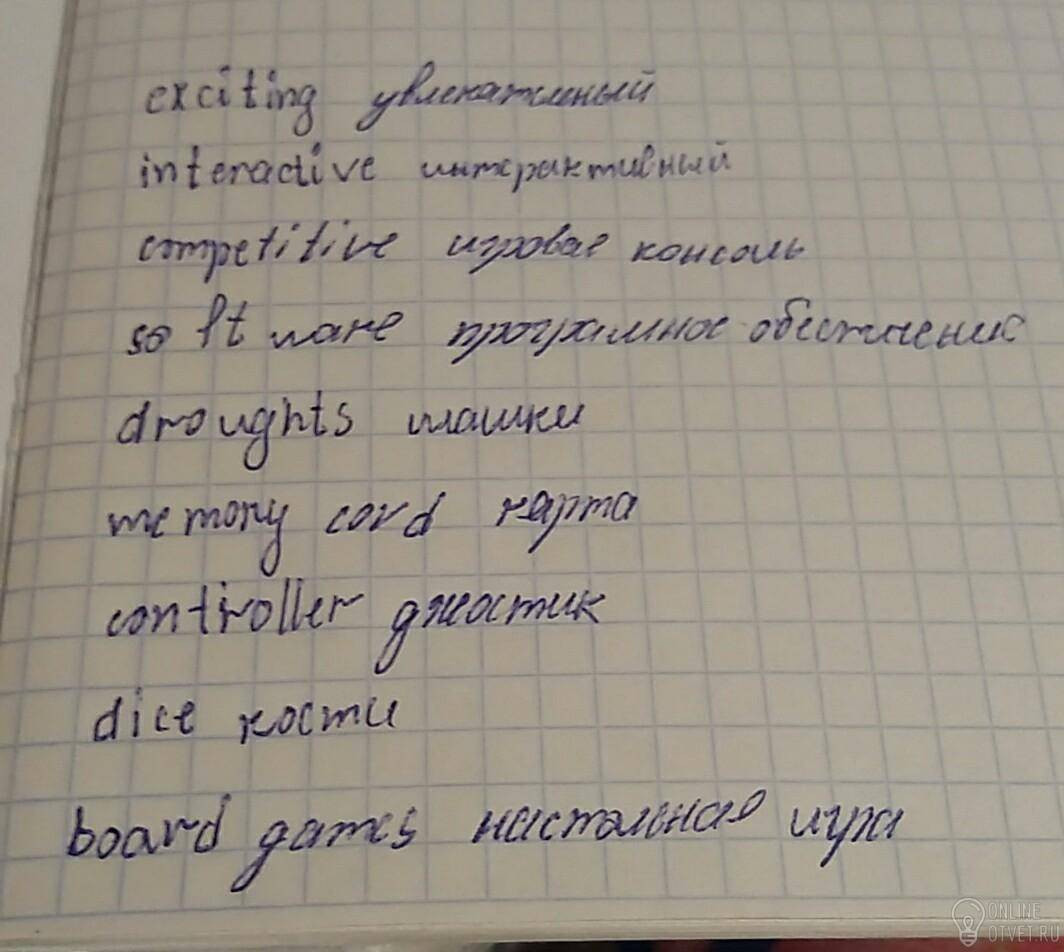 exciting увлекательный
interactive интерактивный
competitive игровая консоль
software програмное обеспечение
droughts шашки
memory cord карта
controller джостик
dice кости
board games настольная игра
ONLINE
OTVET.RU